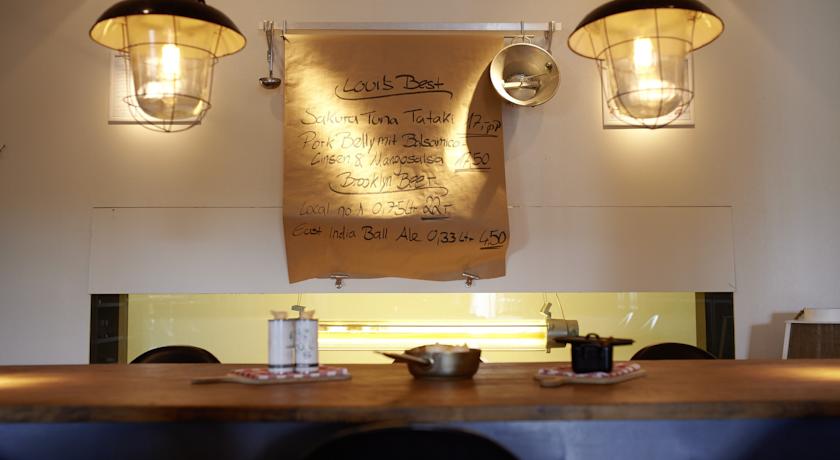 Loui's Best
Sakura Tuna Tataki 17,-pp
Pork Belly mit Balsamico
Linsen & Mangosalsa 17.50
Brooklyn Beer
Local no 1 0,75 Ltr 22,-
East India Ball Ale 0,33 Ltr 4,50